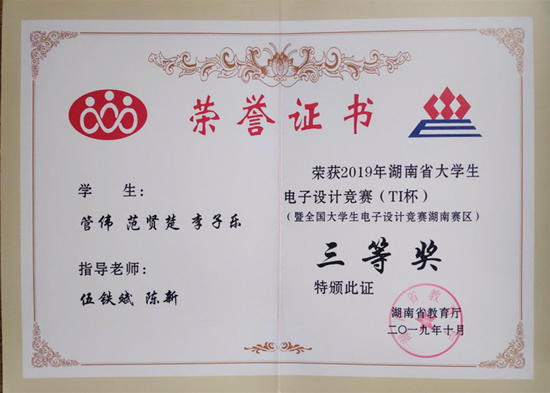 荣誉证书
学 生：
管伟 范贤楚 李子乐
指导老师：
伍铁斌 陈新
荣获2019年湖南省大学生
电子设计竞赛（TI杯）
（暨全国大学生电子设计竞赛湖南赛区）
三等奖
特颁此证
湖南省教育厅
二〇一九年十月